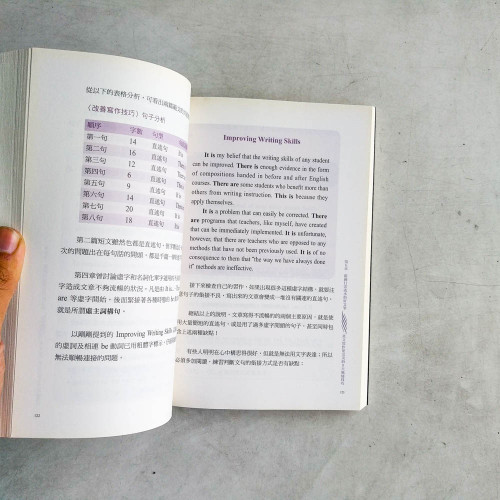 從以下的表格分析,可看出兩篇
〈改善寫作技巧〉句子分析
順序 字數 句型
第一句 14 直述句 It is
第二句 16 直述句 There
第三句 12 直述句 There
第四句 6 直述句 This
第五句 9 直述句 It is
第六句 14 直述句 There
第七句 20 直述句 It is
第八句 18 直述句 It is
第二篇短文雖然也都是直述句,
次的問題出在每句話的開頭,都是千篇一律
第四章曾討論虛字和名詞化
字造成文章不夠流暢的狀況。凡是由 It is
are 等虛字開始,後面緊接著各種
而成的虛主詞構句。
以剛剛提到的 Improving Writing Skills
的虛詞及相連 be 動詞已用粗體字標示,
無法順暢連接的問題。
Improving Writing Skills
It is my belief that the writing skills of any student
can be improved. There is enough evidence in the form
of compositions handed in before and after English
courses. There are some students who benefit more than
others from writing instruction. This is because they
apply themselves.
It is a problem that can easily be corrected. There
are programs that teachers, like myself, have created
that can be immediately implemented. It is unfortunate,
however, that there are teachers who are opposed to any
methods that have not been previously used. It is of no
consequence to them that "the way we have always done
it" methods are ineffective.
接下來檢查自己的習作,如果出現很多這種虛字結構,就要注
意句子的銜接不良,寫出來的文章會變成一堆沒有關連的直述句。
總結以上的說明,文章寫得不流暢的兩個主要原因,就是使
用大量簡短的直述句,或是用了過多虛字開頭的句子,甚至同時包
含上述兩種缺點!
有些人明明在心中構思得很好,但就是無法用文字表達;所以
必須多加閱讀,練習判斷文句的銜接方式是否有缺點: